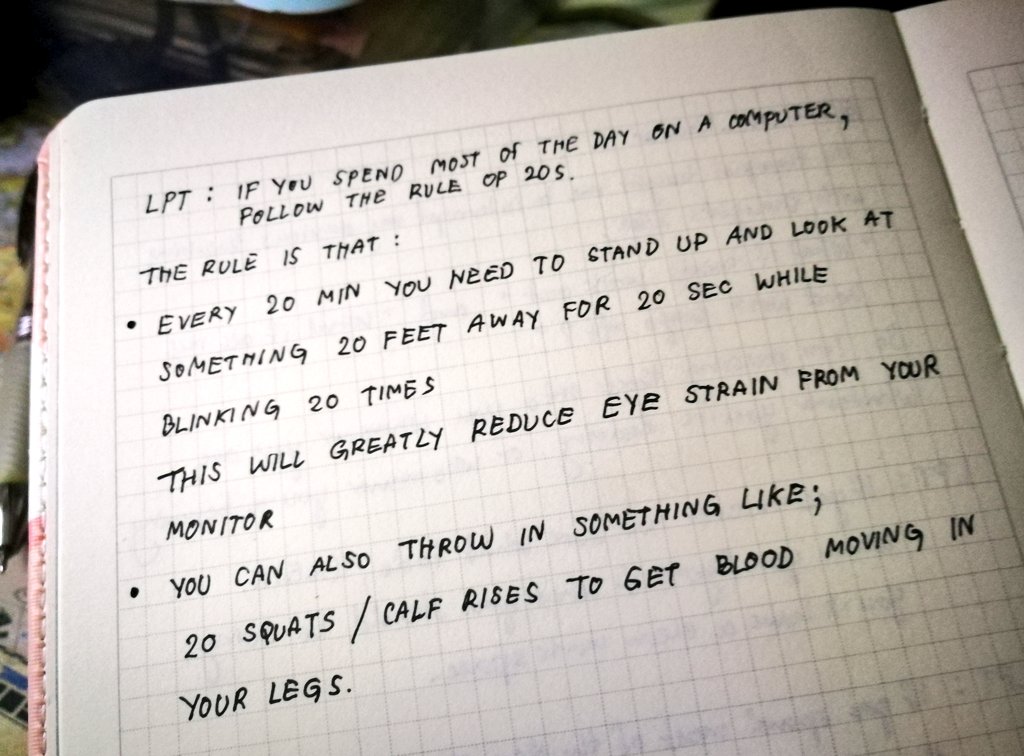 LPT : IF YOU SPEND MOST OF THE DAY ON A COMPUTER,
FOLLOW THE RULE OF 20S.
THE RULE IS THAT :
• EVERY 20 MIN YOU NEED TO STAND UP AND LOOK AT
SOMETHING 20 FEET AWAY FOR 20 SEC WHILE
BLINKING 20 TIMES
THIS WILL GREATLY REDUCE EYE STRAIN FROM YOUR
MONITOR
• YOU CAN ALSO THROW IN SOMETHING LIKE;
20 SQUATS / CALF RISES TO GET BLOOD MOVING IN
YOUR LEGS.